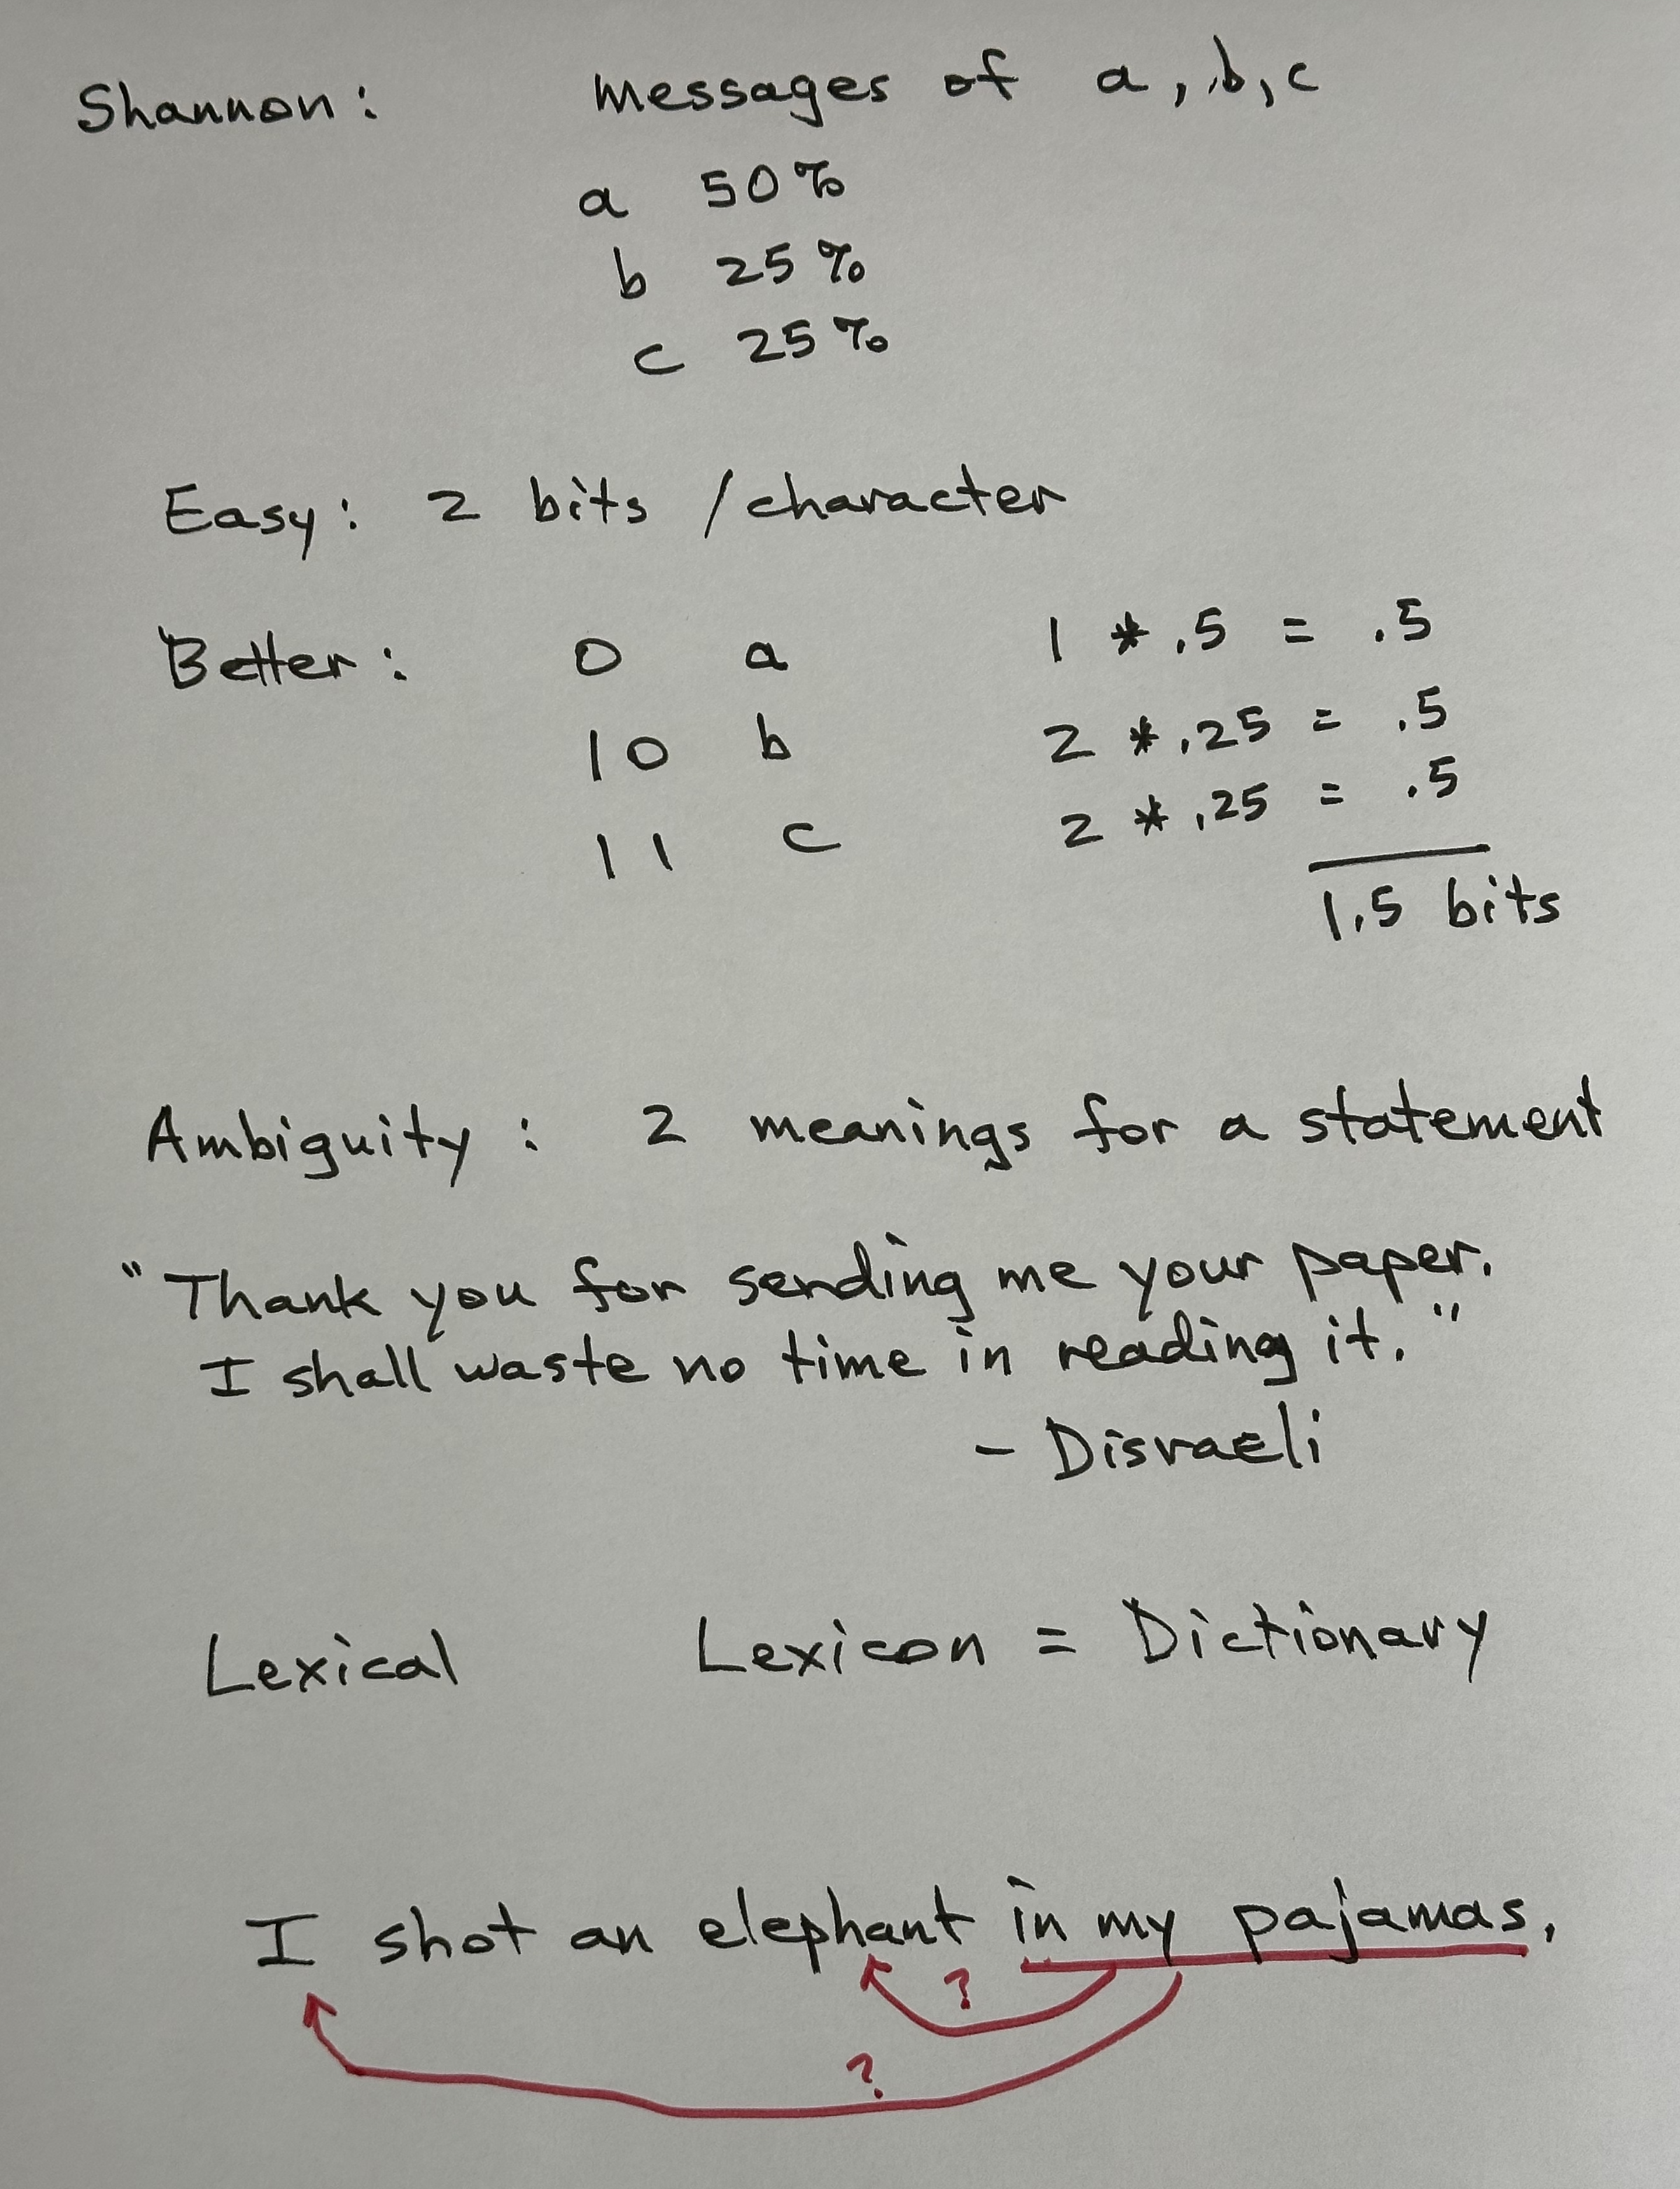 Shannon: messages of a, b, c
a 50%
b 25%
c 25%
Easy: 2 bits /character
Better: 0 a 1 * .5 = .5
10 b 2 * .25 = .5
11 c 2 * .25 = .5
1.5 bits
Ambiguity: 2 meanings for a statement
"Thank you for sending me your paper.
I shall waste no time in reading it."
- Disraeli
Lexical Lexicon = Dictionary
I shot an elephant in my pajamas.
?
?